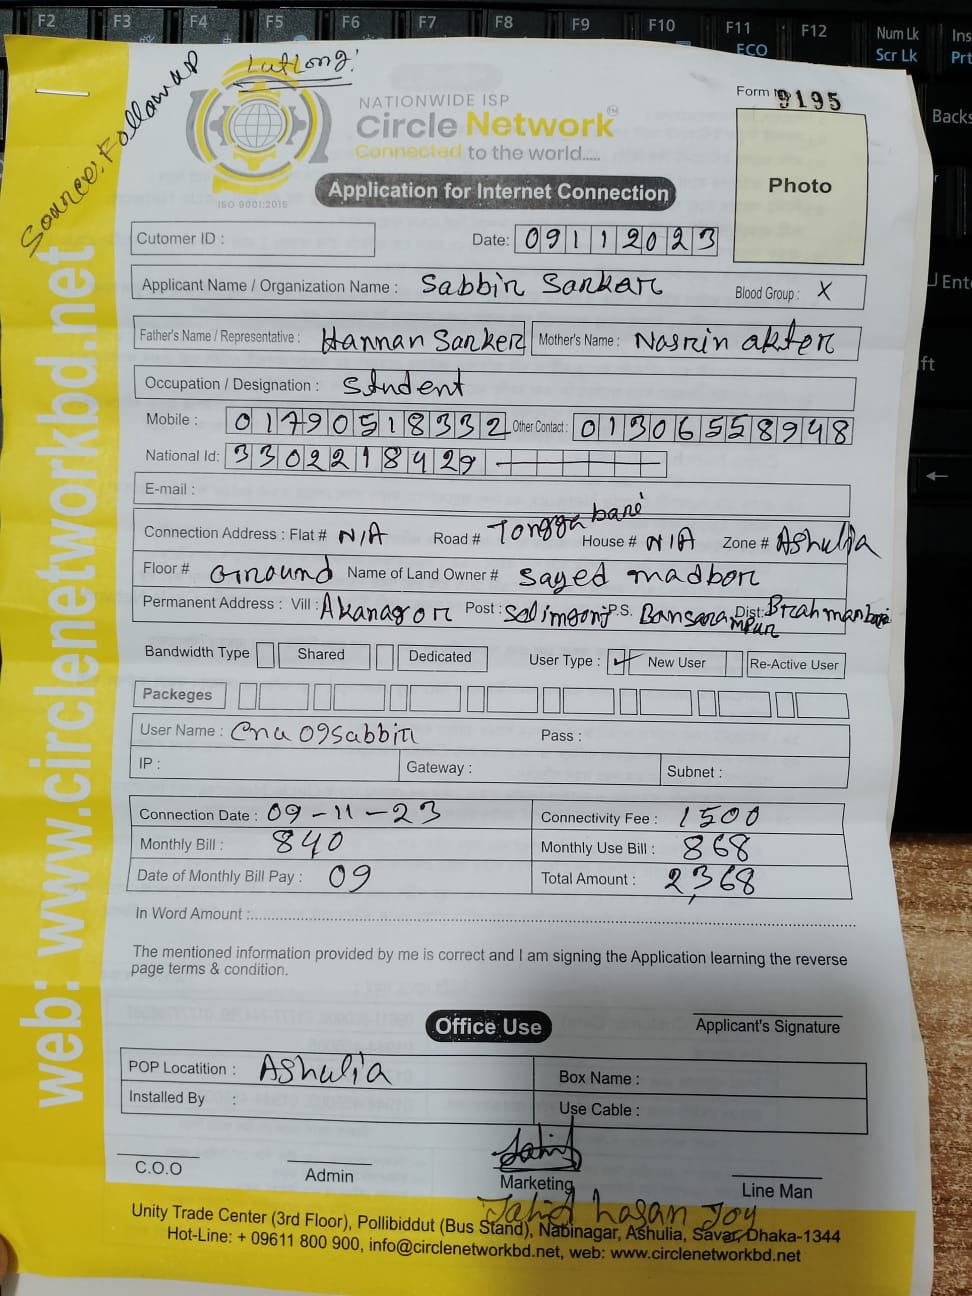 F2 F3 F4 F5 F6 F7 F8 F9 F10 F11 F12 Num Lk Ins
ECO Scr Lk Prt
Backs
Ente
ft
Source: Follow up
LutLong!
NATIONWIDE ISP
Circle Network™
Connected to the world.....
ISO 9001:2015
Form 9195
Photo
Application for Internet Connection
Cutomer ID :
Date: 09112023
Applicant Name / Organization Name : Sabbir Sarkar Blood Group : X
Father's Name / Representative : Hannan Sarker Mother's Name : Nasrin akter
Occupation / Designation : Student
Mobile : 01790518332 Other Contact : 01306558948
National Id: 3302218429
E-mail :
Connection Address : Flat # N/A Road # Tongga bari House # N/A Zone # Ashulia
Floor # Ground Name of Land Owner # Sayed madbor
Permanent Address : Vill : Akanagor Post : Salimgonj P.S. Bansarampur Dist: Brahmanbaria
Bandwidth Type Shared Dedicated User Type : ✓ New User Re-Active User
Packeges
User Name : Cna09sabbir Pass :
IP : Gateway : Subnet :
Connection Date : 09-11-23 Connectivity Fee : 1500
Monthly Bill : 840 Monthly Use Bill : 868
Date of Monthly Bill Pay : 09 Total Amount : 2,368
In Word Amount :
The mentioned information provided by me is correct and I am signing the Application learning the reverse
page terms & condition.
Applicant's Signature
Office Use
POP Locatition : Ashulia Box Name :
Installed By : Use Cable :
Jahid
C.O.O Admin Marketing Line Man
Jahid hasan Joy
Unity Trade Center (3rd Floor), Pollibiddut (Bus Stand), Nabinagar, Ashulia, Savar, Dhaka-1344
Hot-Line: + 09611 800 900, info@circlenetworkbd.net, web: www.circlenetworkbd.net
web: www.circlenetworkbd.net